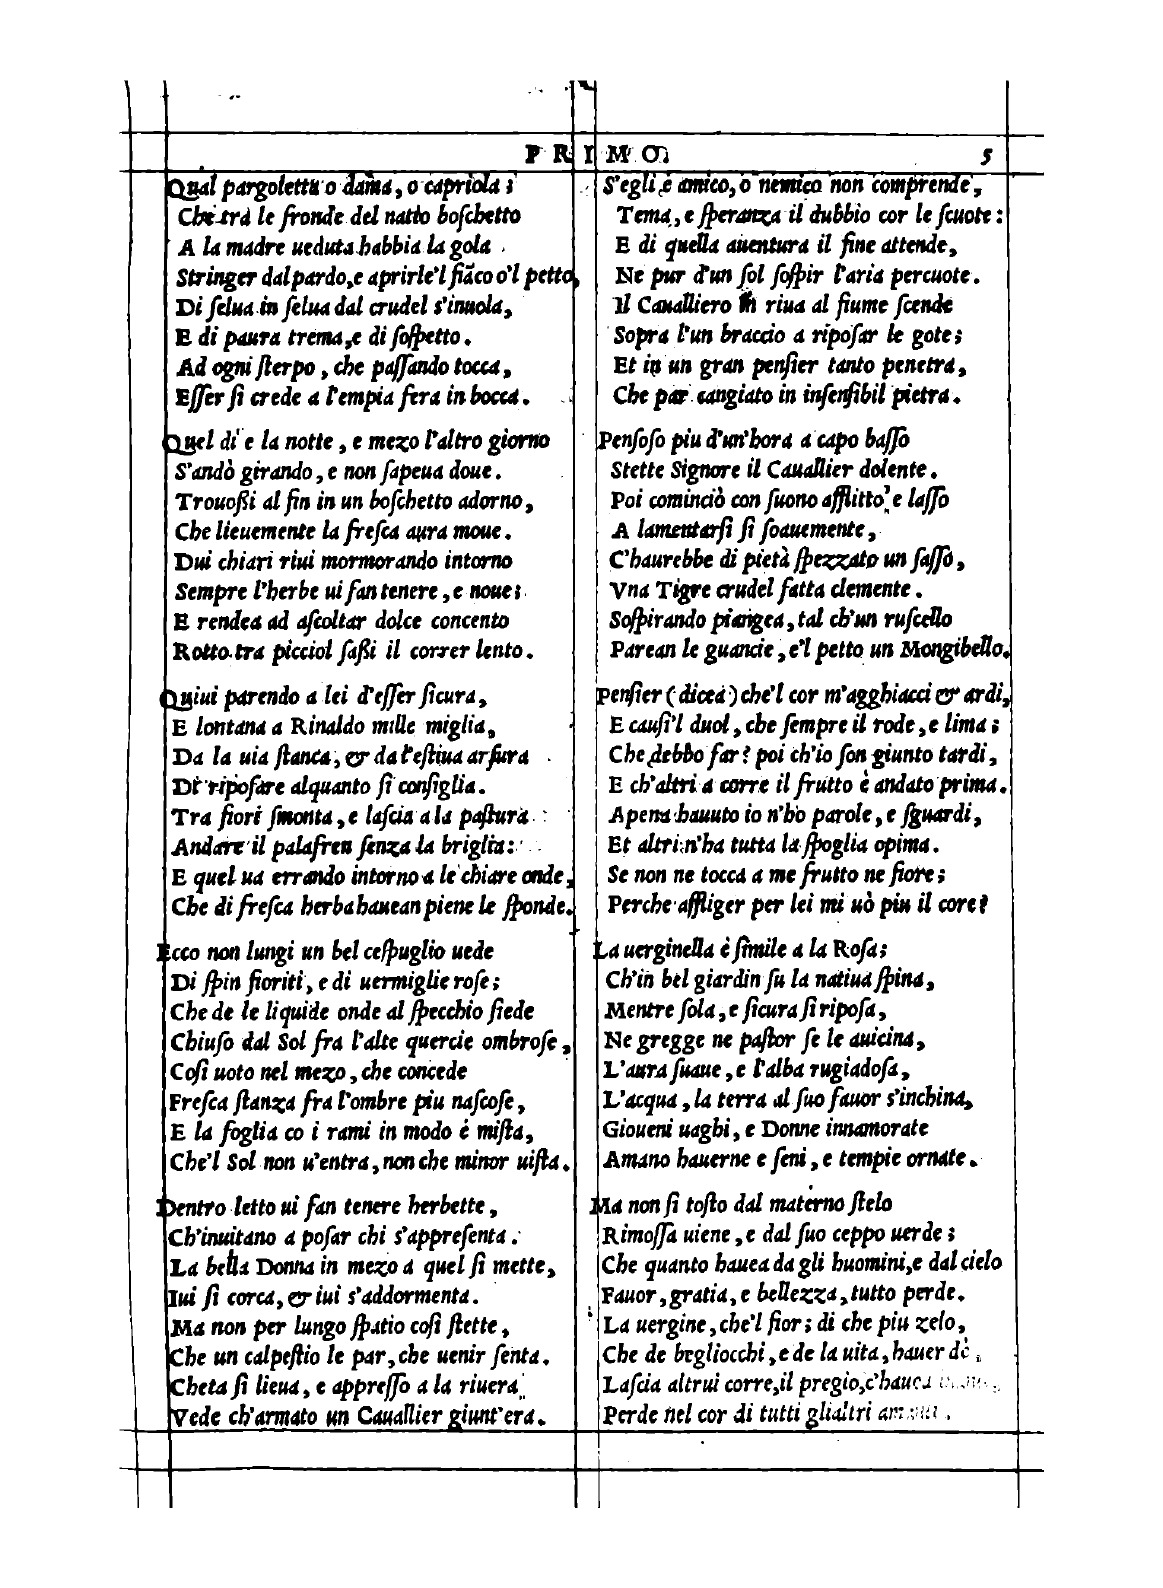 PRIMO 5
Qual pargoletta o dama, o capriola;
Che trà le fronde del natio boſchetto
A la madre ueduta habbia la gola
Stringer dal pardo, e aprirle'l fiãco o'l petto,
Di ſelua in ſelua dal crudel s'inuola,
E di paura trema, e di ſoſpetto.
Ad ogni ſterpo, che paſſando tocca,
Eſſer ſi crede a l'empia fera in bocca.
Quel di e la notte, e mezo l'altro giorno
S'andò girando, e non ſapeua doue.
Trouoßi al fin in un boſchetto adorno,
Che lieuemente la freſca aura moue.
Dui chiari riui mormorando intorno
Sempre l'herbe ui fan tenere, e noue;
E rendea ad aſcoltar dolce concento
Rotto tra picciol ſaßi il correr lento.
Quiui parendo a lei d'eſſer ſicura,
E lontana a Rinaldo mille miglia,
Da la uia ſtanca, & da l'eſtiua arſura
Di ripoſare alquanto ſi conſiglia.
Tra fiori ſmonta, e laſcia a la paſtura
Andare il palafren ſenza la briglia:
E quel ua errando intorno a le chiare onde,
Che di freſca herba hauean piene le ſponde.
Ecco non lungi un bel ceſpuglio uede
Di ſpin fioriti, e di uermiglie roſe;
Che de le liquide onde al ſpecchio ſiede
Chiuſo dal Sol fra l'alte quercie ombroſe,
Coſi uoto nel mezo, che concede
Freſca ſtanza fra l'ombre piu naſcoſe,
E la foglia co i rami in modo è miſta,
Che'l Sol non u'entra, non che minor uiſta.
Dentro letto ui fan tenere herbette,
Ch'inuitano a poſar chi s'appreſenta.
La bella Donna in mezo a quel ſi mette,
Iui ſi corca, & iui s'addormenta.
Ma non per lungo ſpatio coſi ſtette,
Che un calpeſtio le par, che uenir ſenta.
Cheta ſi lieua, e appreſſo a la riuera
Vede ch'armato un Cauallier giunt'era.
S'egli è amico, o nemico non comprende,
Tema, e ſperanza il dubbio cor le ſcuote:
E di quella auentura il fine attende,
Ne pur d'un ſol ſoſpir l'aria percuote.
Il Caualliero in riua al fiume ſcende
Sopra l'un braccio a ripoſar le gote;
Et in un gran penſier tanto penetra,
Che par cangiato in inſenſibil pietra.
Penſoſo piu d'un'hora a capo baſſo
Stette Signore il Cauallier dolente.
Poi cominciò con ſuono afflitto, e laſſo
A lamentarſi ſi ſoauemente,
C'haurebbe di pietà ſpezzato un ſaſſo,
Vna Tigre crudel fatta clemente.
Soſpirando piangea, tal ch'un ruſcello
Parean le guancie, e'l petto un Mongibello.
Penſier (dicea) che'l cor m'agghiacci & ardi,
E cauſi'l duol, che ſempre il rode, e lima;
Che debbo far? poi ch'io ſon giunto tardi,
E ch'altri a corre il frutto è andato prima.
Apena hauuto io n'ho parole, e ſguardi,
Et altri n'ha tutta la ſpoglia opima.
Se non ne tocca a me frutto ne fiore;
Perche affliger per lei mi uò piu il core?
La uerginella è ſimile a la Roſa;
Ch'in bel giardin ſu la natiua ſpina,
Mentre ſola, e ſicura ſi ripoſa,
Ne gregge ne paſtor ſe le auicina,
L'aura ſuaue, e l'alba rugiadoſa,
L'acqua, la terra al ſuo fauor s'inchina,
Gioueni uaghi, e Donne innamorate
Amano hauerne e ſeni, e tempie ornate.
Ma non ſi toſto dal materno ſtelo
Rimoſſa uiene, e dal ſuo ceppo uerde;
Che quanto hauea da gli huomini, e dal cielo
Fauor, gratia, e bellezza, tutto perde.
La uergine, che'l fior; di che piu zelo,
Che de begliocchi, e de la uita, hauer dè,
Laſcia altrui corre, il pregio, c'hauea
Perde nel cor di tutti glialtri